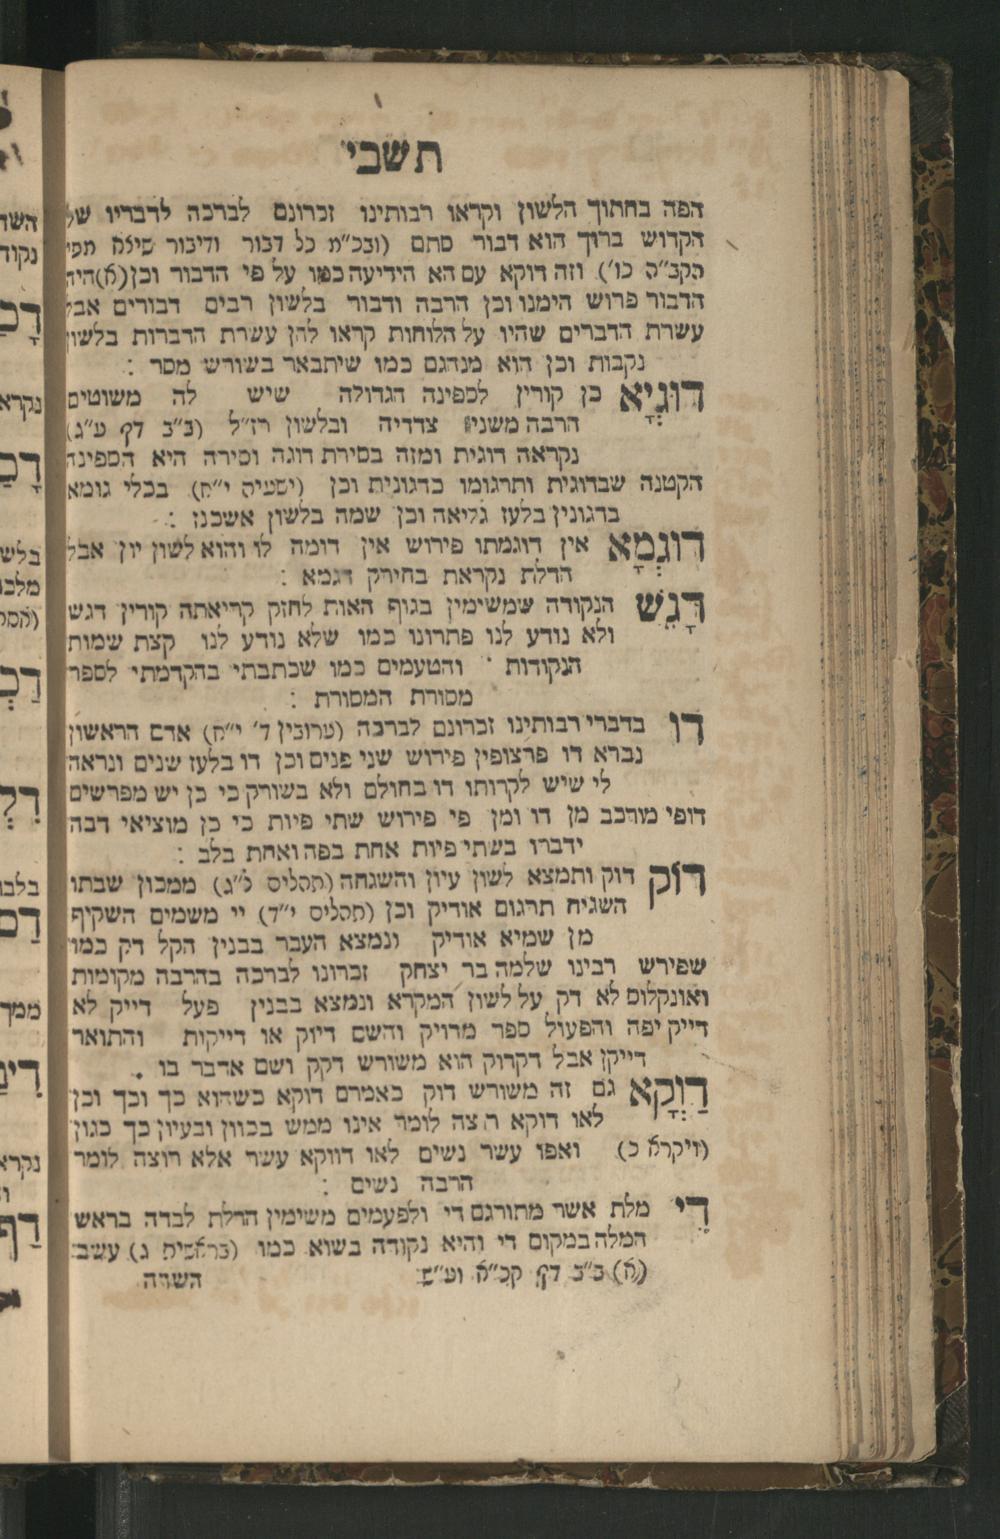 תשבי
הפה בחתוך הלשון וקראו רבותינו זכרונם לברכה לדבריו של
הקדוש ברוך הוא דבור סתם (ובכ״מ כל דבור ודיבור שיצא מפי
הקב״ה כו׳) וזה דוקא עם הא הידיעה כמו על פי הדבור וכן (א) היה
הדבור פרוש הימנו וכן הרבה ודבור בלשון רבים דבורים אבל
עשרת הדברים שהיו על הלוחות קראו להן עשרת הדברות בלשון
נקבות וכן הוא מנהגם כמו שיתבאר בשורש מסר :
דוּגְיָא כן קורין לספינה הגדולה שיש לה משוטים
הרבה משני צדדיה ובלשון רז״ל (ב״ב דף ע״ג)
נקראה דוגית ומזה בסירת דוגה וסירה היא הספינה
הקטנה שבדוגית ותרגומו בדגונית וכן (ישעיה י״ח) בכלי גומא
בדגונין בלעז גליאה וכן שמה בלשון אשכנז :
דוּגְמָא אין דוגמתו פירוש אין דומה לו והוא לשון יון אבל
הדלת נקראת בחירק דגמא :
דָגֵשׁ הנקודה שמשימין בגוף האות לחזק קריאתה קורין דגש
ולא נודע לנו פתרונו כמו שלא נודע לנו קצת שמות
הנקודות והטעמים כמו שכתבתי בהקדמתי לספר
מסורת המסורת :
דו בדברי רבותינו זכרונם לברכה (ערובין ד׳ י״ח) אדם הראשון
נברא דו פרצופין פירוש שני פנים וכן דו בלעז שנים ונראה
לי שיש לקרותו דו בחולם ולא בשורק כי כן יש מפרשים
דופי מורכב מן דו ומן פי פירוש שתי פיות כי כן מוציאי דבה
ידברו בשתי פיות אחת בפה ואחת בלב :
דוֹק דוק ותמצא לשון עיון והשגחה (תהליס ל״ג) ממכון שבתו
השגיח תרגום אודיק וכן (תהליס י״ד) יי משמים השקיף
מן שמיא אודיק ונמצא העבר בבנין הקל דק כמו
שפירש רבינו שלמה בר יצחק זכרונו לברכה בהרבה מקומות
ואונקלוס לא דק על לשון המקרא ונמצא בבנין פעל דייק לא
דייק יפה והפעול ספר מדויק והשם דיוק או דייקות והתואר
דייקן אבל דקדוק הוא משורש דקק ושם אדבר בו .
דַוְקָא גם זה משורש דוק כאמרם דוקא כשהוא כך וכך וכן
לאו דוקא רוצה לומר אינו ממש בכוון ובעיון כך כגון
(ויקרא כ) ואפו עשר נשים לאו דווקא עשר אלא רוצה לומר
הרבה נשים :
דִי מלת אשר מתורגם די ולפעמים משימין הדלת לבדה בראש
המלה במקום די והיא נקודה בשוא כמו (בראשית ג) עשב
(א) ב״ב דף קכ״א וע״ש
השדה